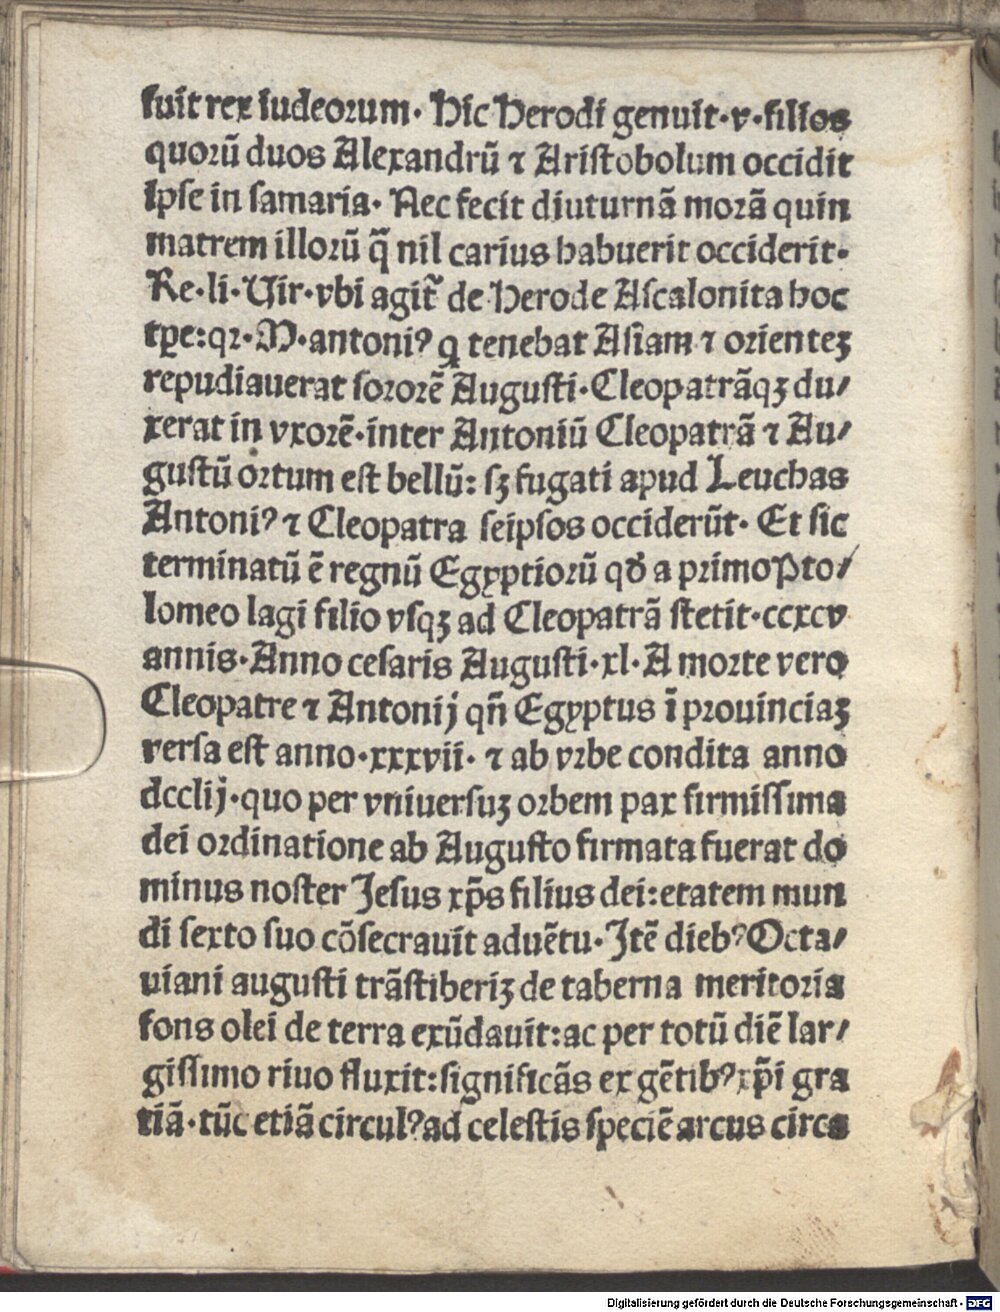 fuit rex iudeorum· Hic Herodi genuit·v·filios
quorū duos Alexandrū ⁊ Aristobolum occidit
Ipse in samaria· Nec fecit diuturnā morā quin
matrem illorū q̄ nil carius habuerit occiderit·
Re·li·Vir·vbi agit̄ de Herode Ascalonita hoc
tp̄e:qꝛ·M·antoniꝰ q tenebat Asiam ⁊ orienteꝫ
repudiauerat sororē Augusti·Cleopatrāqꝫ du/
xerat in vxorē·inter Antoniū Cleopatrā ⁊ Au/
gustū ortum est bellū: sꝫ fugati apud Leuchas
Antoniꝰ ⁊ Cleopatra seipsos occiderūt· Et sic
terminatū ē regnū Egyptiorū qđ a primo Pto/
lomeo lagi filio vsqꝫ ad Cleopatrā stetit·ccxcv
annis·Anno cesaris Augusti·xl·A morte vero
Cleopatre ⁊ Antonij qn̄ Egyptus ī prouinciaꝫ
versa est anno·xxxvii· ⁊ ab vrbe condita anno
dcclij·quo per vniuersuꝫ orbem pax firmissima
dei ordinatione ab Augusto firmata fuerat do
minus noster Jesus xp̄s filius dei:etatem mun
di sexto suo cōsecrauit aduētu·Jtē diebꝰ Octa/
uiani augusti trāstiberiꝫ de taberna meritoria
fons olei de terra exūdauit:ac per totū diē lar/
gissimo riuo fluxit:significās ex gētibꝰ xp̄i gra
tiā·tūc etiā circulꝰ ad celestis speciē arcus circa
Digitalisierung gefördert durch die Deutsche Forschungsgemeinschaft - DFG